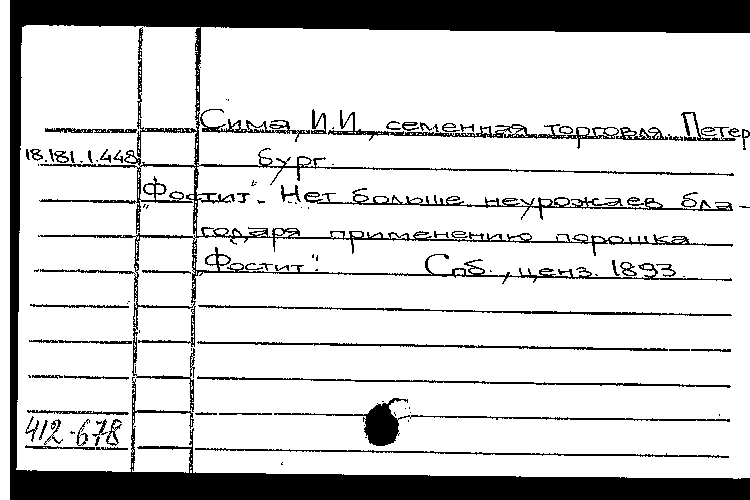 Сима, И.И., семенная торговля. Петер
18.181.1.448 бург.
"Фостит". Нет больше неурожаев бла-
годаря применению порошка
"Фостит". Спб., ценз. 1893
412-678